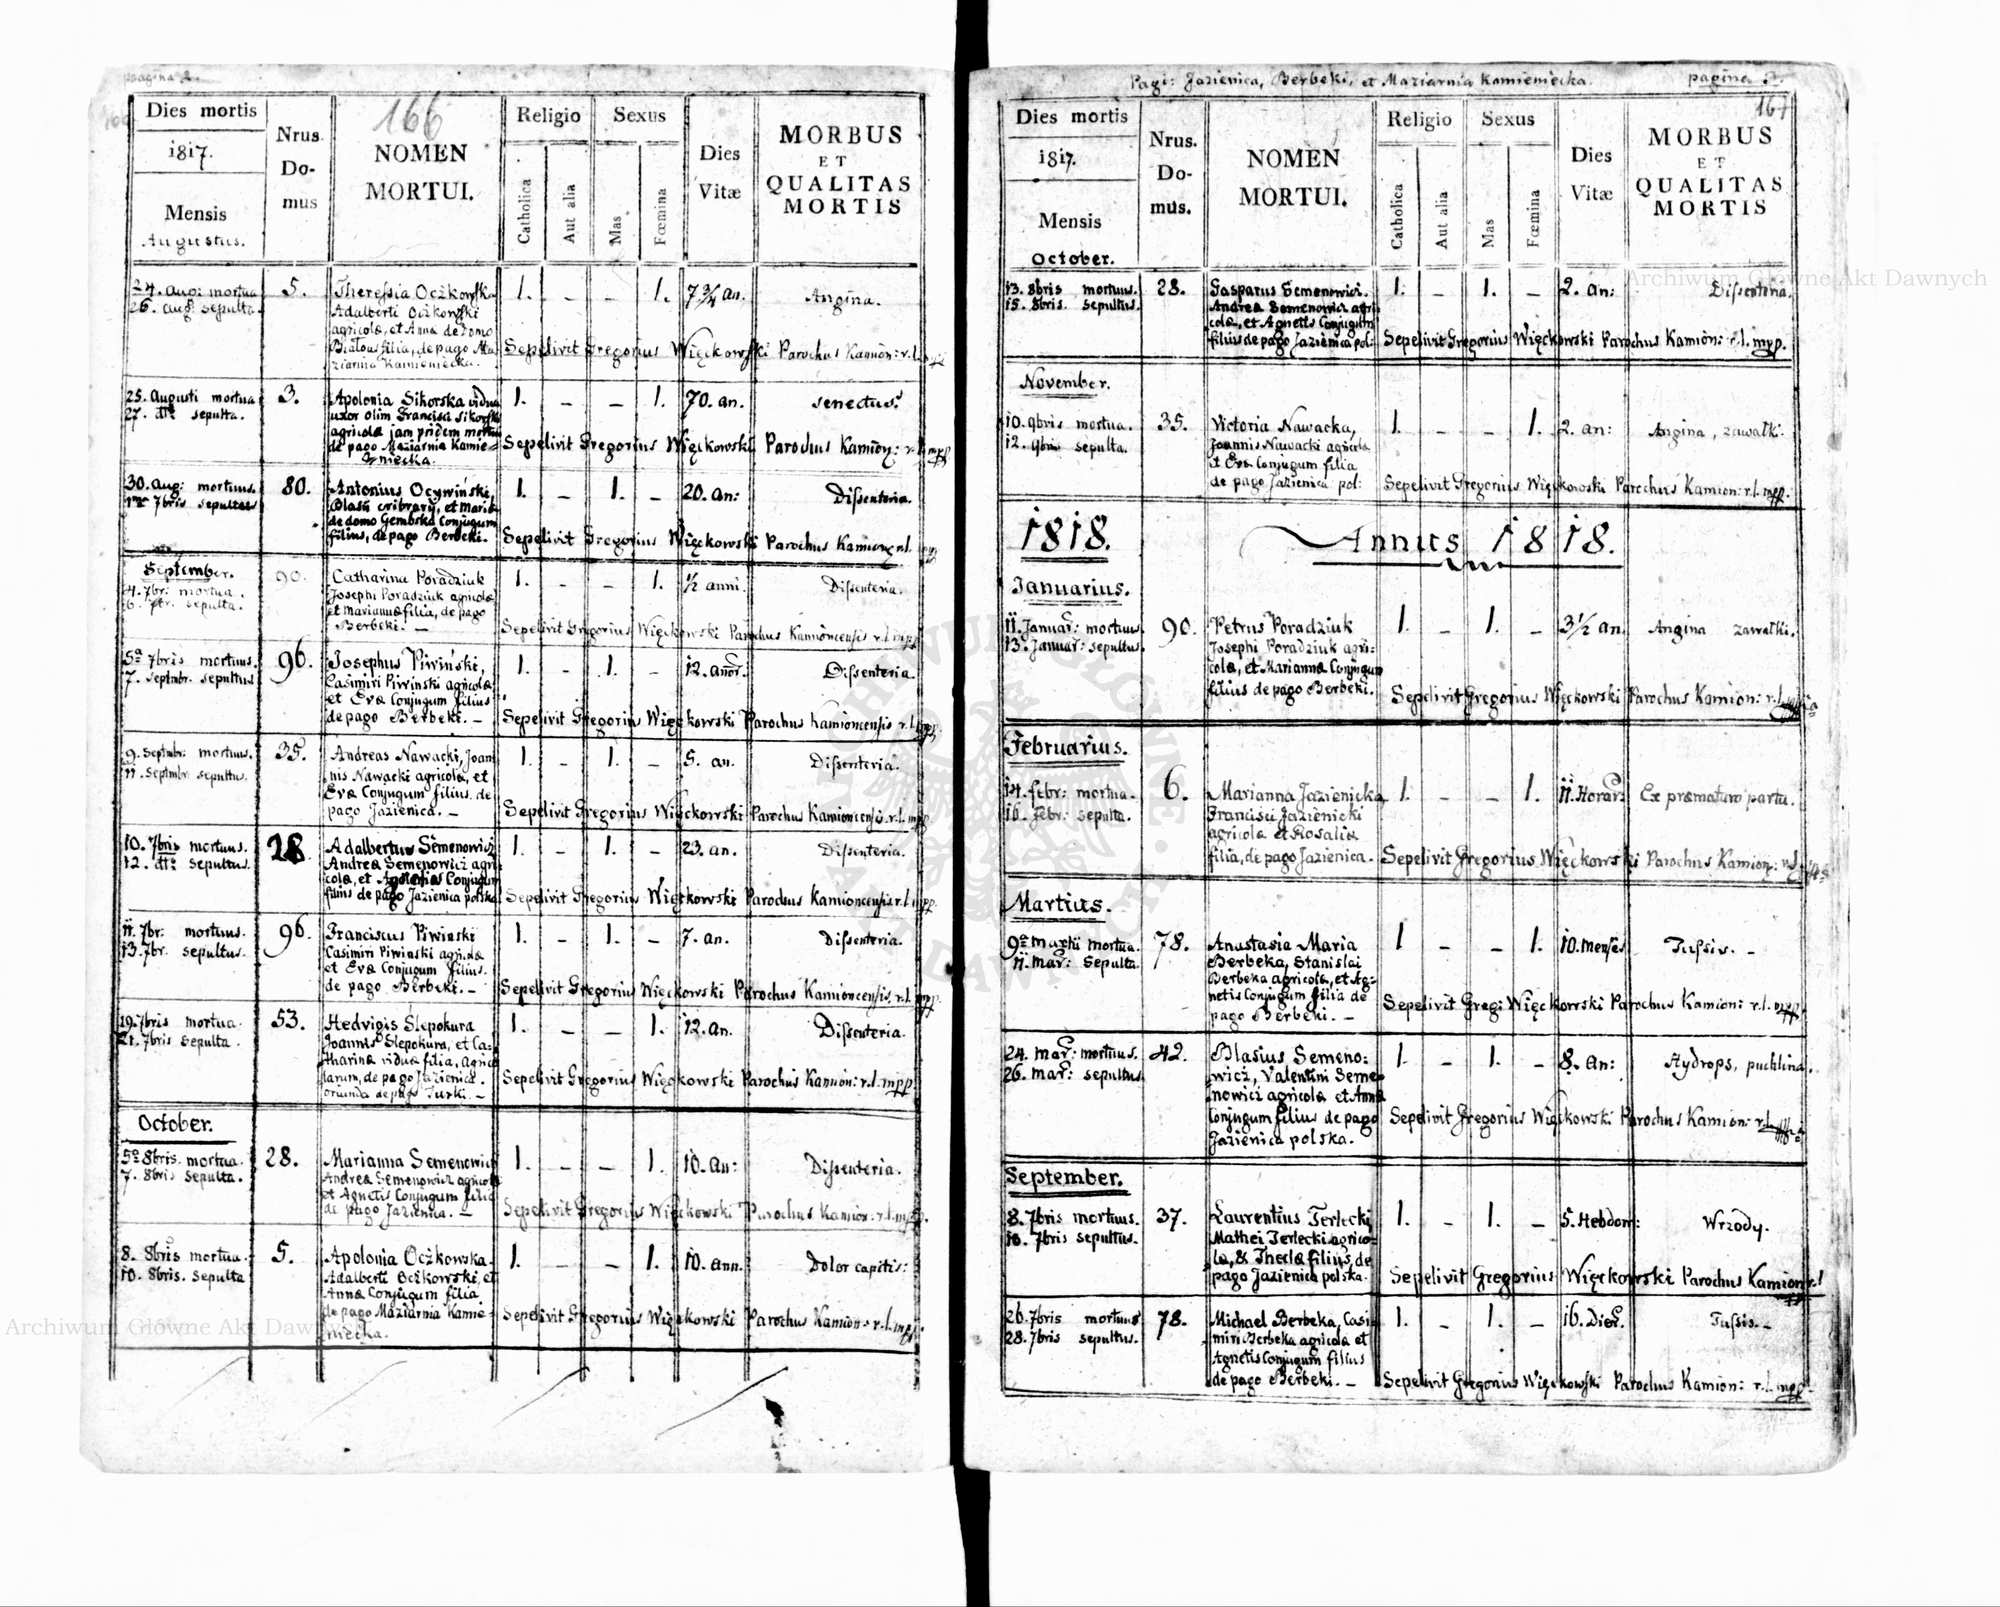 pagina 2.
166
Dies mortis
1817.
Mensis
Augustus.
Nrus
Do-
mus
NOMEN
MORTUI.
Religio
Catholica
Aut alia
Sexus
Mas
Fœmina
Dies
Vitæ
MORBUS
ET
QUALITAS
MORTIS
24. aug: mortua
26. aug: sepulta.
5.
Theressia Ocżkowska
Adalberti Ocżkowski
agricolæ, et Anna de Domo
filia, de pago Ma-
ziarnia Kamieniecka.
1. – – 1.
7 3/4 an.
Angina.
Sepelivit Gregorius Więckowski Parochus Kamion: r.l. mpp
25. Augusti mortua
27. dtt. sepulta.
3.
Apolonia Sikorska vidua
uxor olim Francisci Sikorski
agricolæ jam pridem mortui
de pago Maziarnia Kamie-
niecka.
1. – – 1.
70. an.
senectus.
Sepelivit Gregorius Więckowski Parochus Kamion: r.l. mpp
30. aug: mortuus.
7bris sepultus
80.
Antonius Ocywiński,
Blasii cribrarij, et Maria
de domo Gembska Conjugum
filius, de pago Berbeki.
1. – 1. –
20. an:
Dissenteria.
Sepelivit Gregorius Więckowski Parochus Kamion r.l. mpp
September.
4. 7br: mortua.
6. 7br. sepulta.
90.
Catharina Poradziuk
Josephi Poradziuk agricolæ
et Mariannæ filia, de pago
Berbeki. –
1. – – 1.
1/2 anni.
Dissenteria.
Sepelivit Gregorius Więckowski Parochus Kamioncensis r.l. mpp.
5a 7bris mortuus.
7. Septmbr. sepultus
96.
Josephus Piwiński,
Casimiri Piwinski agricolæ
et Evæ Conjugum filius
de pago Berbeki. –
1. – 1. –
12. anor.
Dissenteria.
Sepelivit Gregorius Więckowski Parochus Kamioncensis r.l. mpp.
9. Septmbr: mortuus.
11. Septmbr. sepultus.
35.
Andreas Nawacki, Joan-
nis Nawacki agricolæ, et
Evæ Conjugum filius, de
pago Jazienica. –
1. – 1. –
5. an.
Dissenteria.
Sepelivit Gregorius Więckowski Parochus Kamioncensis r.l. mpp
10. 7bris mortuus.
12. dtt: sepultus.
28
Adalbertus Semenowicz
Andreæ Semenowicz agri-
colæ, et Conjugum
filius de pago Jazienica polska
1. – 1. –
23. an.
Dissenteria.
Sepelivit Gregorius Więckowski Parochus Kamioncensis r.l. mpp.
11. 7br: mortuus.
13. 7br. sepultus.
96.
Franciscus Piwinski
Casimiri Piwinski agricolæ
et Evæ Conjugum filius.
de pago Berbeki. –
1. – 1. –
7. an.
Dissenteria.
Sepelivit Gregorius Więckowski Parochus Kamioncensis r.l. mpp.
19. 7bris mortua.
21. 7bris sepulta.
53.
Hedvigis Slepokura
Joannis Slepokura, et Ca-
tharinæ viduæ filia, agrico-
larum, de pago Jazienica.
oriunda de pago Turki. –
1. – – 1.
12. an.
Dissenteria.
Sepelivit Gregorius Więckowski Parochus Kamion: r.l. mpp.
October.
5a 8bris. mortua.
7. 8bris sepulta.
28.
Marianna Semenowicz
Andreæ Semenowicz agricolæ
et Agnetis Conjugum filia
de pago Jazienica. –
1. – – 1.
10. An:
Dissenteria.
Sepelivit Gregorius Więckowski Parochus Kamion: r.l. mpp.
8. 8bris mortua.
10. 8bris. sepulta
5.
Apolonia Ocżkowska
Adalberti Ocżkowski, et
Annæ Conjugum filia
de pago Maziarnia Kamie-
niecka.
1. – – 1.
10. ann.
Dolor capitis:
Sepelivit Gregorius Więckowski Parochus Kamion: r.l. mpp.
Archiwum Główne Akt Dawnych
Pagi: Jazienica, Berbeki, et Maziarnia Kamieniecka.
pagina 3.
167
Dies mortis
1817.
Mensis
October.
Nrus.
Do-
mus.
NOMEN
MORTUI.
Religio
Catholica
Aut alia
Sexus
Mas
Fœmina
Dies
Vitæ
MORBUS
ET
QUALITAS
MORTIS
Archiwum Główne Akt Dawnych
13. 8bris mortuus.
15. 8bris. sepultus.
28.
Gasparus Semenowicz.
Andreæ Semenowicz agri-
colæ, et Agnetis Conjugum
filius de pago Jazienica pol:
1. – 1. –
2. an:
Dissenteria.
Sepelivit Gregorius Więckowski Parochus Kamion: r.l. mpp.
November.
10. 9bris mortua.
12. 9bris sepulta.
35.
Victoria Nawacka,
Joannis Nawacki agricolæ
et Evæ Conjugum filia
de pago Jazienica pol:
1. – – 1.
2. an:
Angina, zawałki.
Sepelivit Gregorius Więckowski Parochus Kamion: r.l. mpp.
1818.
Annus 1818.
Januarius.
11. Januar: mortuus
13. Januar: sepultus.
90.
Petrus Poradziuk
Josephi Poradziuk agri-
colæ, et Mariannæ Conjugum
filius de pago Berbeki.
1. – 1. –
3 1/2 an.
Angina zawałki.
Sepelivit Gregorius Więckowski Parochus Kamion: r.l.
Februarius.
14. febr: mortua.
16. febr: sepulta.
6.
Marianna Jazienicka
Francisci Jazienicki
agricolæ et Rosaliæ
filia, de pago Jazienica.
1. – – 1.
11. Horar:
Ex præmaturo partu.
Sepelivit Gregorius Więckowski Parochus Kamion:
Martius.
9a martii mortua.
11. mar: sepulta.
78.
Anastasia Maria
Berbeka, Stanislai
Berbeka agricolæ, et Ag-
netis Conjugum filia de
pago Berbeki. –
1 – – 1.
10. menses
Tussis. –
Sepelivit Greg: Więckowski Parochus Kamion: r.l. mpp.
24. mar: mortuus.
26. mar: sepultus
42.
Blasius Semeno-
wicz, Valentini Seme-
nowicz agricolæ et Annæ
Conjugum filius de pago
Jazienica polska.
1. – 1. –
8. An:
Hydrops, puchlina.
Sepelivit Gregorius Więckowski Parochus Kamion: r.l.
September.
8. 7bris mortuus.
10. 7bris sepultus.
37.
Laurentius Terlecki
Mathei Terlecki agrico-
læ, & Theclæ filius, de
pago Jazienica polska.
1. – 1. –
5. Hebdom:
Wrzody.
Sepelivit Gregorius Więckowski Parochus Kamion: r.l
26. 7bris mortuus
28. 7bris sepultus.
78.
Michael Berbeka, Casi-
miri Berbeka agricolæ et
Agnetis Conjugum filius
de pago Berbeki. –
1. – 1. –
16. Dier.
Tussis. –
Sepelivit Gregorius Więckowski Parochus Kamion: r.l. mpp.